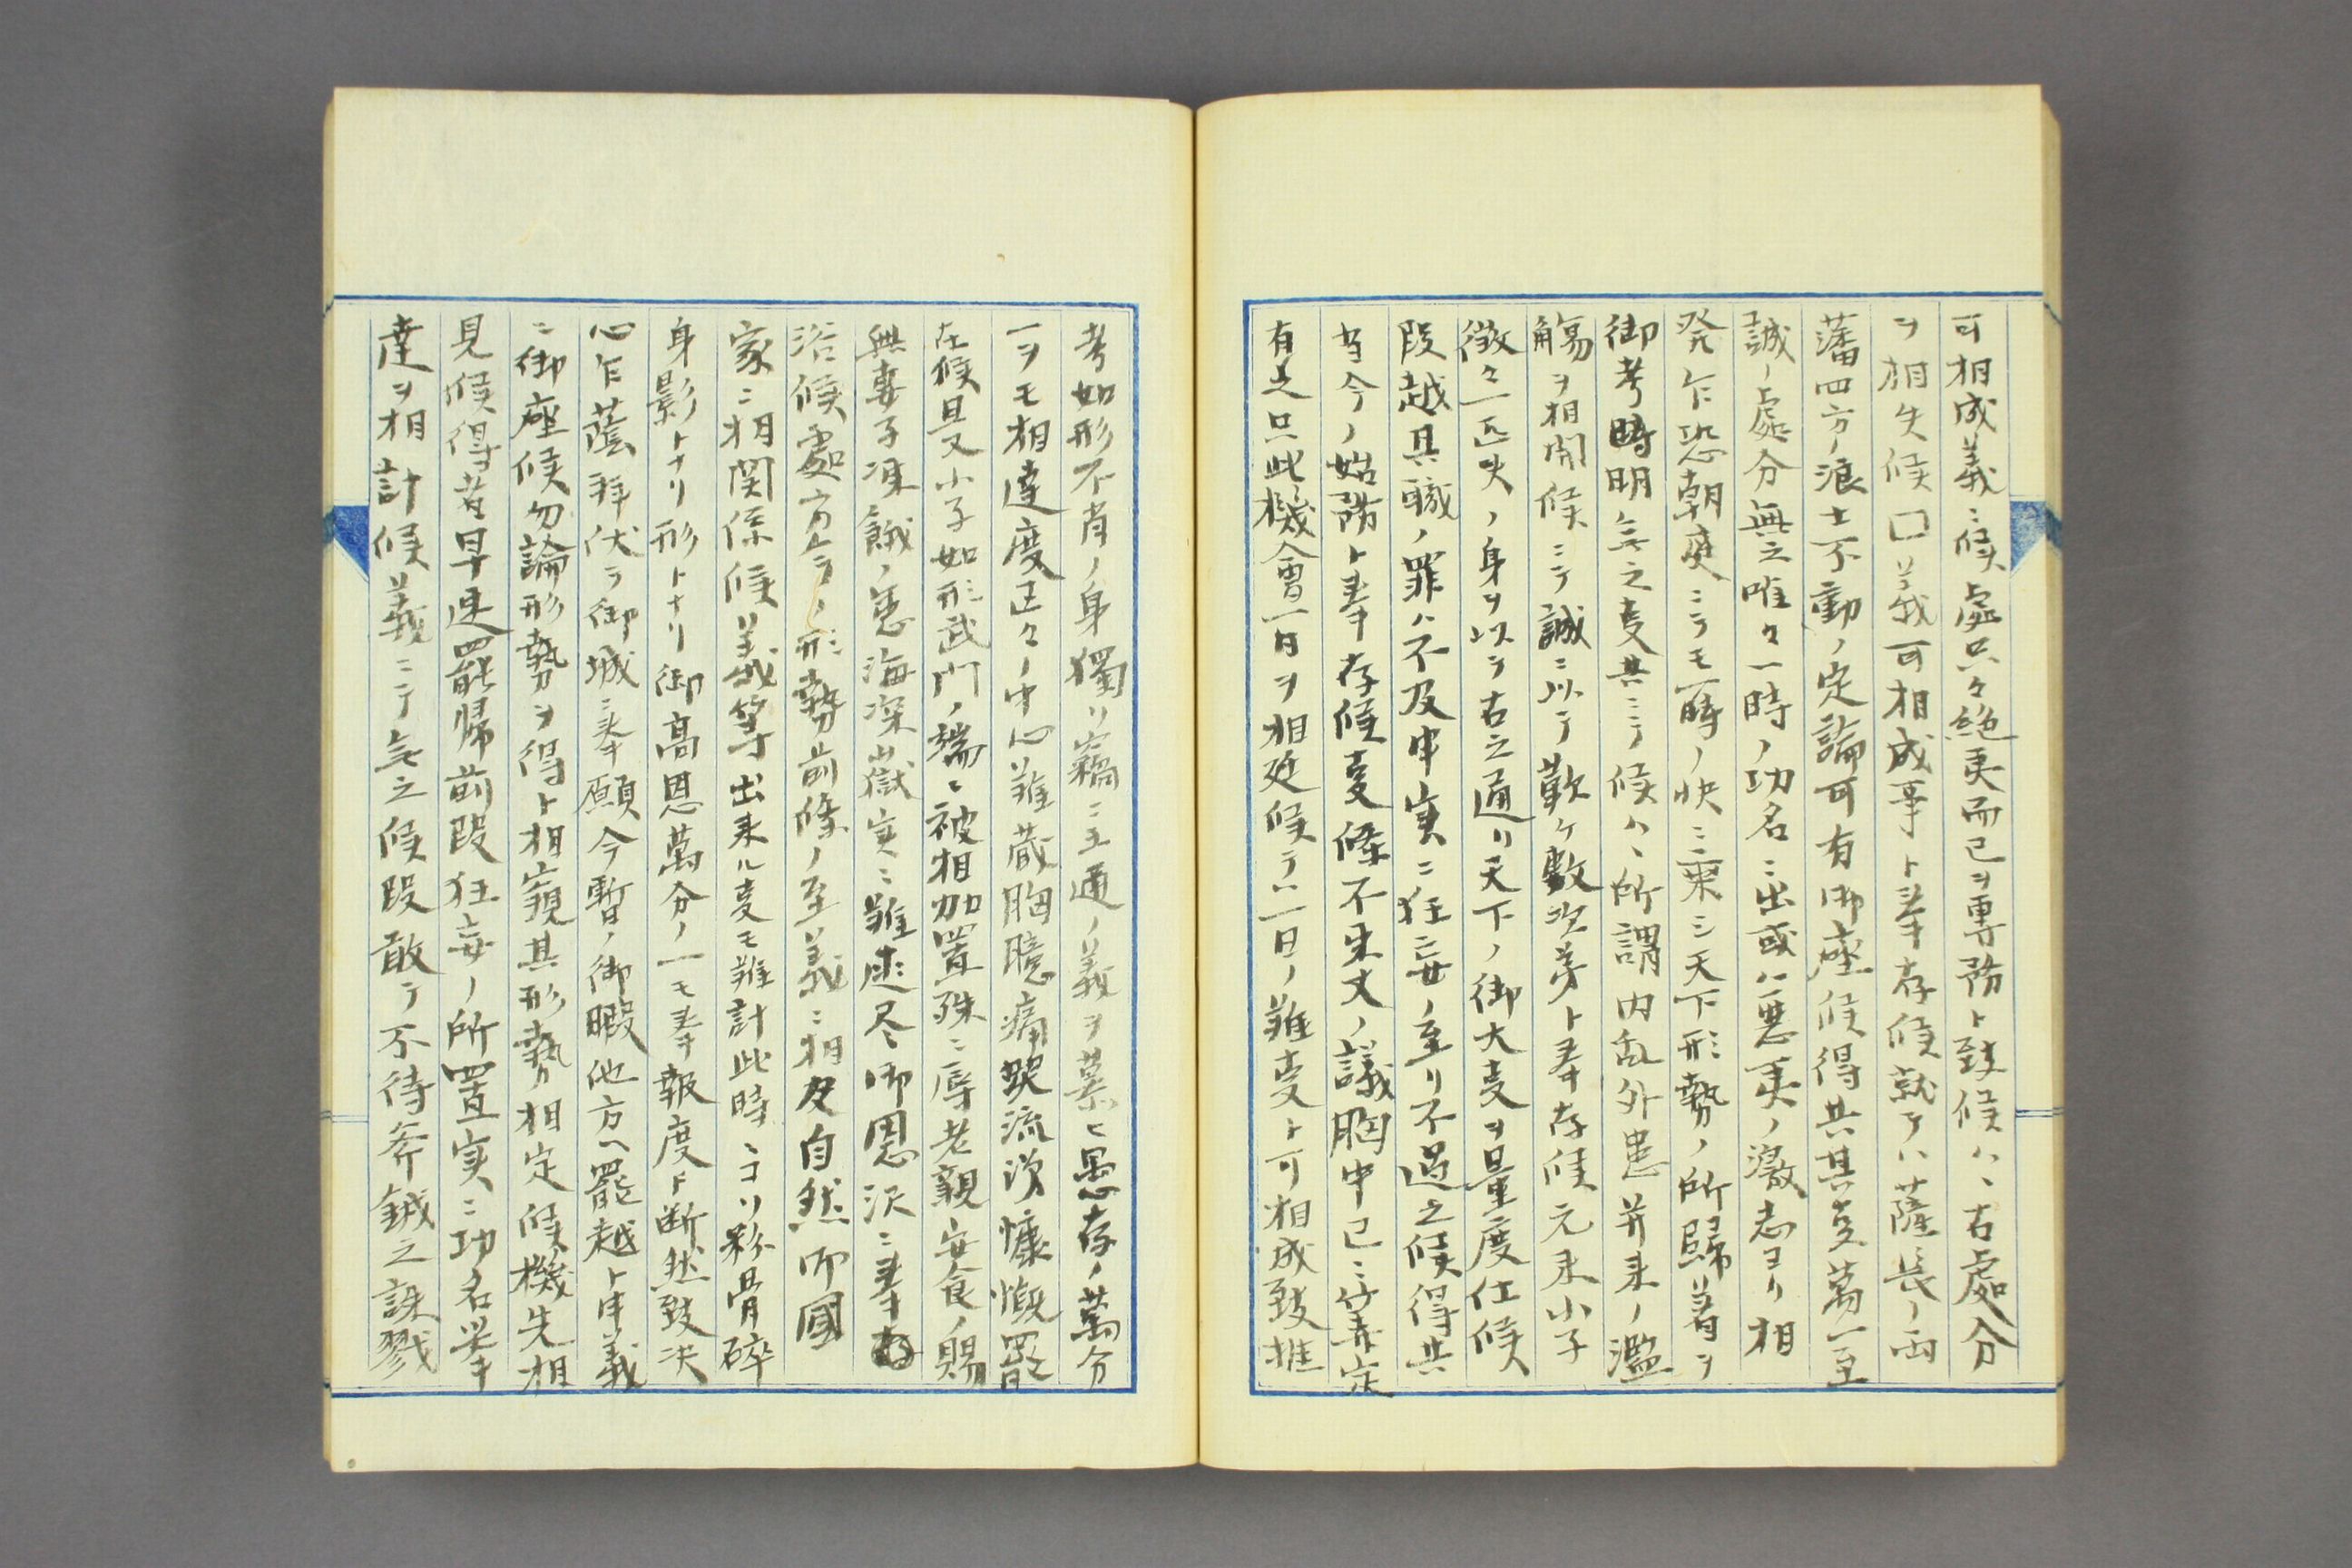 可相成義ニ候處只々絶夷而已ヲ専務ト致候ハヽ右處分
ヲ相失候口義可相成事ト奉存候就テハ薩長ノ両
藩四方ノ浪士不動ノ定論可有御座候得共其実萬一至
誠ノ處分無之唯々一時ノ功名ニ出或ハ悪夷ノ激志ヨリ相
発乍恐朝廷ニテモ一時ノ快ニ乗シ天下形勢ノ所歸着ヲ
御考時明無之事共ニテ候ハヽ所謂内乱外患并来ノ濫
觴ヲ相開候ニテ誠ニ以テ歎ケ敷次第ト奉存候元来小子
微々一匹夫ノ身ヲ以テ右之通リ天下ノ御大事ヲ量度仕候
段越其職ノ罪ハ不及申実ニ狂妄ノ至リ不過之候得共
當今ノ始務ト奉存候事條不朱文ノ議胸中已ニ算定
有之只此機會一日ヲ相延候テハ一日ノ難事ト可相成致推
考如形不肖ノ身獨リ竊ニ五通ノ義ヲ稟ヒ愚存ノ萬分
一ヲモ相達度区々ノ中心難蔵胸臆痛哭流涕慷慨罷
在候且又小子如形武門ノ端ニ被相加置殊ニ辱老親安食ノ賜
無妻子凍餓ノ患海深山嶽実ニ難述尽御恩沢ニ奉
浴候處方今ノ形勢前條ノ至義ニ相及自然御國
家ニ相関係候義等出来ル事モ難計此時ニコソ粉骨碎
身影トナリ形トナリ御高恩萬分ノ一モ奉報度ト断然致决
心乍蔭拝伏テ御城ニ奉願今暫ノ御暇他方ヘ罷越ト申義
ニ御座候勿論形勢ヲ得ト相窺其形勢相定候機先相
見候得者早速罷帰前段狂妄ノ所置実ニ功名挙
達ヲ相計候義ニテ無之候段敢テ不待斧鉞之誅戮